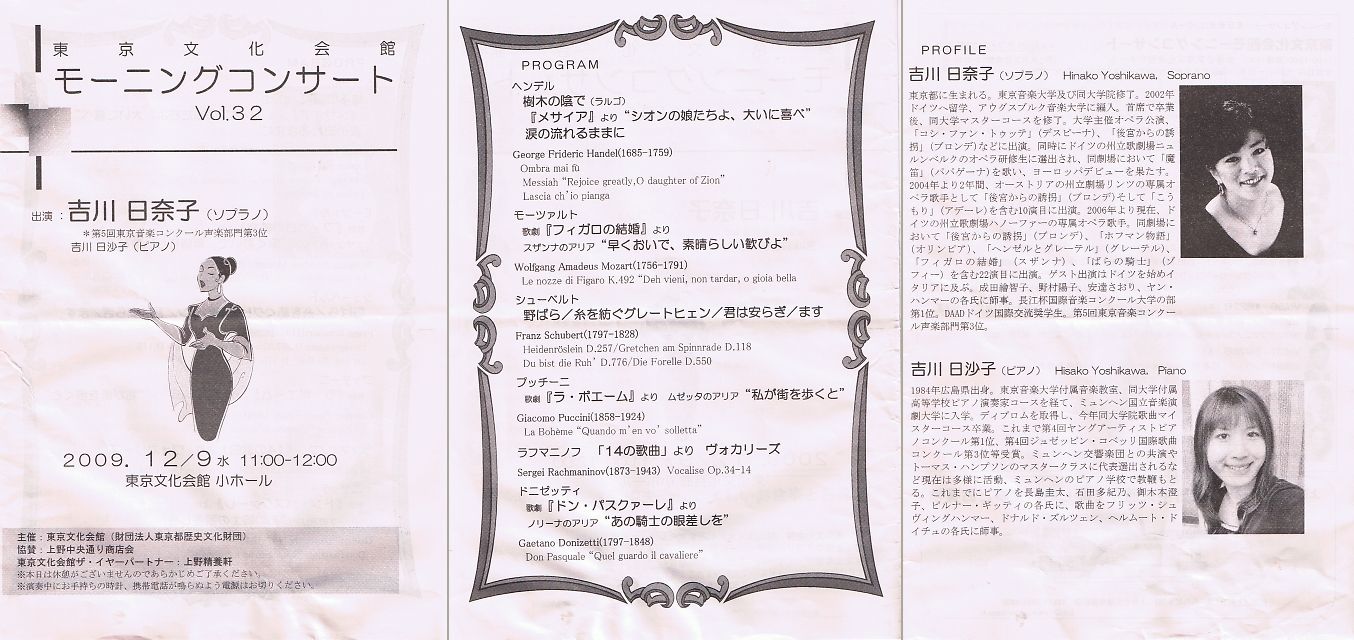 東京文化会館
モーニングコンサート
Vol.32
出演：吉川 日奈子（ソプラノ）
＊第5回東京音楽コンクール声楽部門第3位
吉川 日沙子（ピアノ）
2009. 12／9 水 11:00-12:00
東京文化会館 小ホール
主催：東京文化会館（財団法人東京都歴史文化財団）
協賛：上野中央通り商店会
東京文化会館ザ・イヤーパートナー：上野精養軒
※本日は休憩がございませんのであらかじめご了承ください。
※演奏中にお手持ちの時計、携帯電話が鳴らぬよう電源はお切りください。
PROGRAM
ヘンデル
樹木の陰で（ラルゴ）
『メサイア』より “シオンの娘たちよ、大いに喜べ”
涙の流れるままに
George Frideric Handel(1685-1759)
Ombra mai fù
Messiah “Rejoice greatly,O daughter of Zion”
Lascia ch'io pianga
モーツァルト
歌劇『フィガロの結婚』より
スザンナのアリア “早くおいで、素晴らしい歓びよ”
Wolfgang Amadeus Mozart(1756-1791)
Le nozze di Figaro K.492 “Deh vieni, non tardar, o gioia bella
シューベルト
野ばら／糸を紡ぐグレートヒェン／君は安らぎ／ます
Franz Schubert(1797-1828)
Heidenröslein D.257/Gretchen am Spinnrade D.118
Du bist die Ruh' D.776/Die Forelle D.550
プッチーニ
歌劇『ラ・ボエーム』より ムゼッタのアリア “私が街を歩くと”
Giacomo Puccini(1858-1924)
La Bohème “Quando m'en vo' solletta”
ラフマニノフ 「14の歌曲」より ヴォカリーズ
Sergei Rachmaninov(1873-1943) Vocalise Op.34-14
ドニゼッティ
歌劇『ドン・パスクァーレ』より
ノリーナのアリア “あの騎士の眼差しを”
Gaetano Donizetti(1797-1848)
Don Pasquale “Quel guardo il cavaliere”
PROFILE
吉川 日奈子（ソプラノ） Hinako Yoshikawa, Soprano
東京都に生まれる。東京音楽大学及び同大学院修了。2002年
ドイツへ留学、アウグスブルク音楽大学に編入。首席で卒業
後、同大学マスターコースを修了。大学主催オペラ公演、
「コシ・ファン・トゥッテ」（デスピーナ）、「後宮からの誘
拐」（ブロンデ）などに出演。同時にドイツの州立歌劇場ニュ
ルンベルクのオペラ研修生に選出され、同劇場において「魔
笛」（パパゲーナ）を歌い、ヨーロッパデビューを果たす。
2004年より2年間、オーストリアの州立劇場リンツの専属オ
ペラ歌手として「後宮からの誘拐」（ブロンデ）そして「こう
もり」（アデーレ）を含む10演目に出演。2006年より現在、ド
イツの州立歌劇場ハノーファーの専属オペラ歌手。同劇場にお
いて「後宮からの誘拐」（ブロンデ）、「ホフマン物語」
（オリンピア）、「ヘンゼルとグレーテル」（グレーテル）、
「フィガロの結婚」（スザンナ）、「ばらの騎士」（ゾ
フィー）を含む22演目に出演。ゲスト出演はドイツを始めイ
タリアに及ぶ。成田繪智子、野村陽子、安達さおり、ヤン・
ハンマーの各氏に師事。長江杯国際音楽コンクール大学の部
第1位。DAADドイツ国際交流奨学生。第5回東京音楽コンクー
ル声楽部門第3位。
吉川 日沙子（ピアノ） Hisako Yoshikawa, Piano
1984年広島県出身。東京音楽大学付属音楽教室、同大学付属
高等学校ピアノ演奏家コースを経て、ミュンヘン国立音楽演
劇大学に入学。ディプロムを取得し、今年同大学院歌曲マイ
スターコース卒業。これまで第4回ヤングアーティストピア
ノコンクール第1位、第4回ジュゼッピン・コベッリ国際歌曲
コンクール第3位等受賞。ミュンヘン交響楽団との共演や
トーマス・ハンプソンのマスタークラスに代表選出されるな
ど現在は多様に活動、ミュンヘンのピアノ学校で教鞭もと
る。これまでにピアノを長島圭太、石田多紀乃、御木本澄
子、ビルナー・ギッティの各氏に、歌曲をフリッツ・シュ
ヴィングハンマー、ドナルド・ズルツェン、ヘルムート・ド
イチュの各氏に師事。